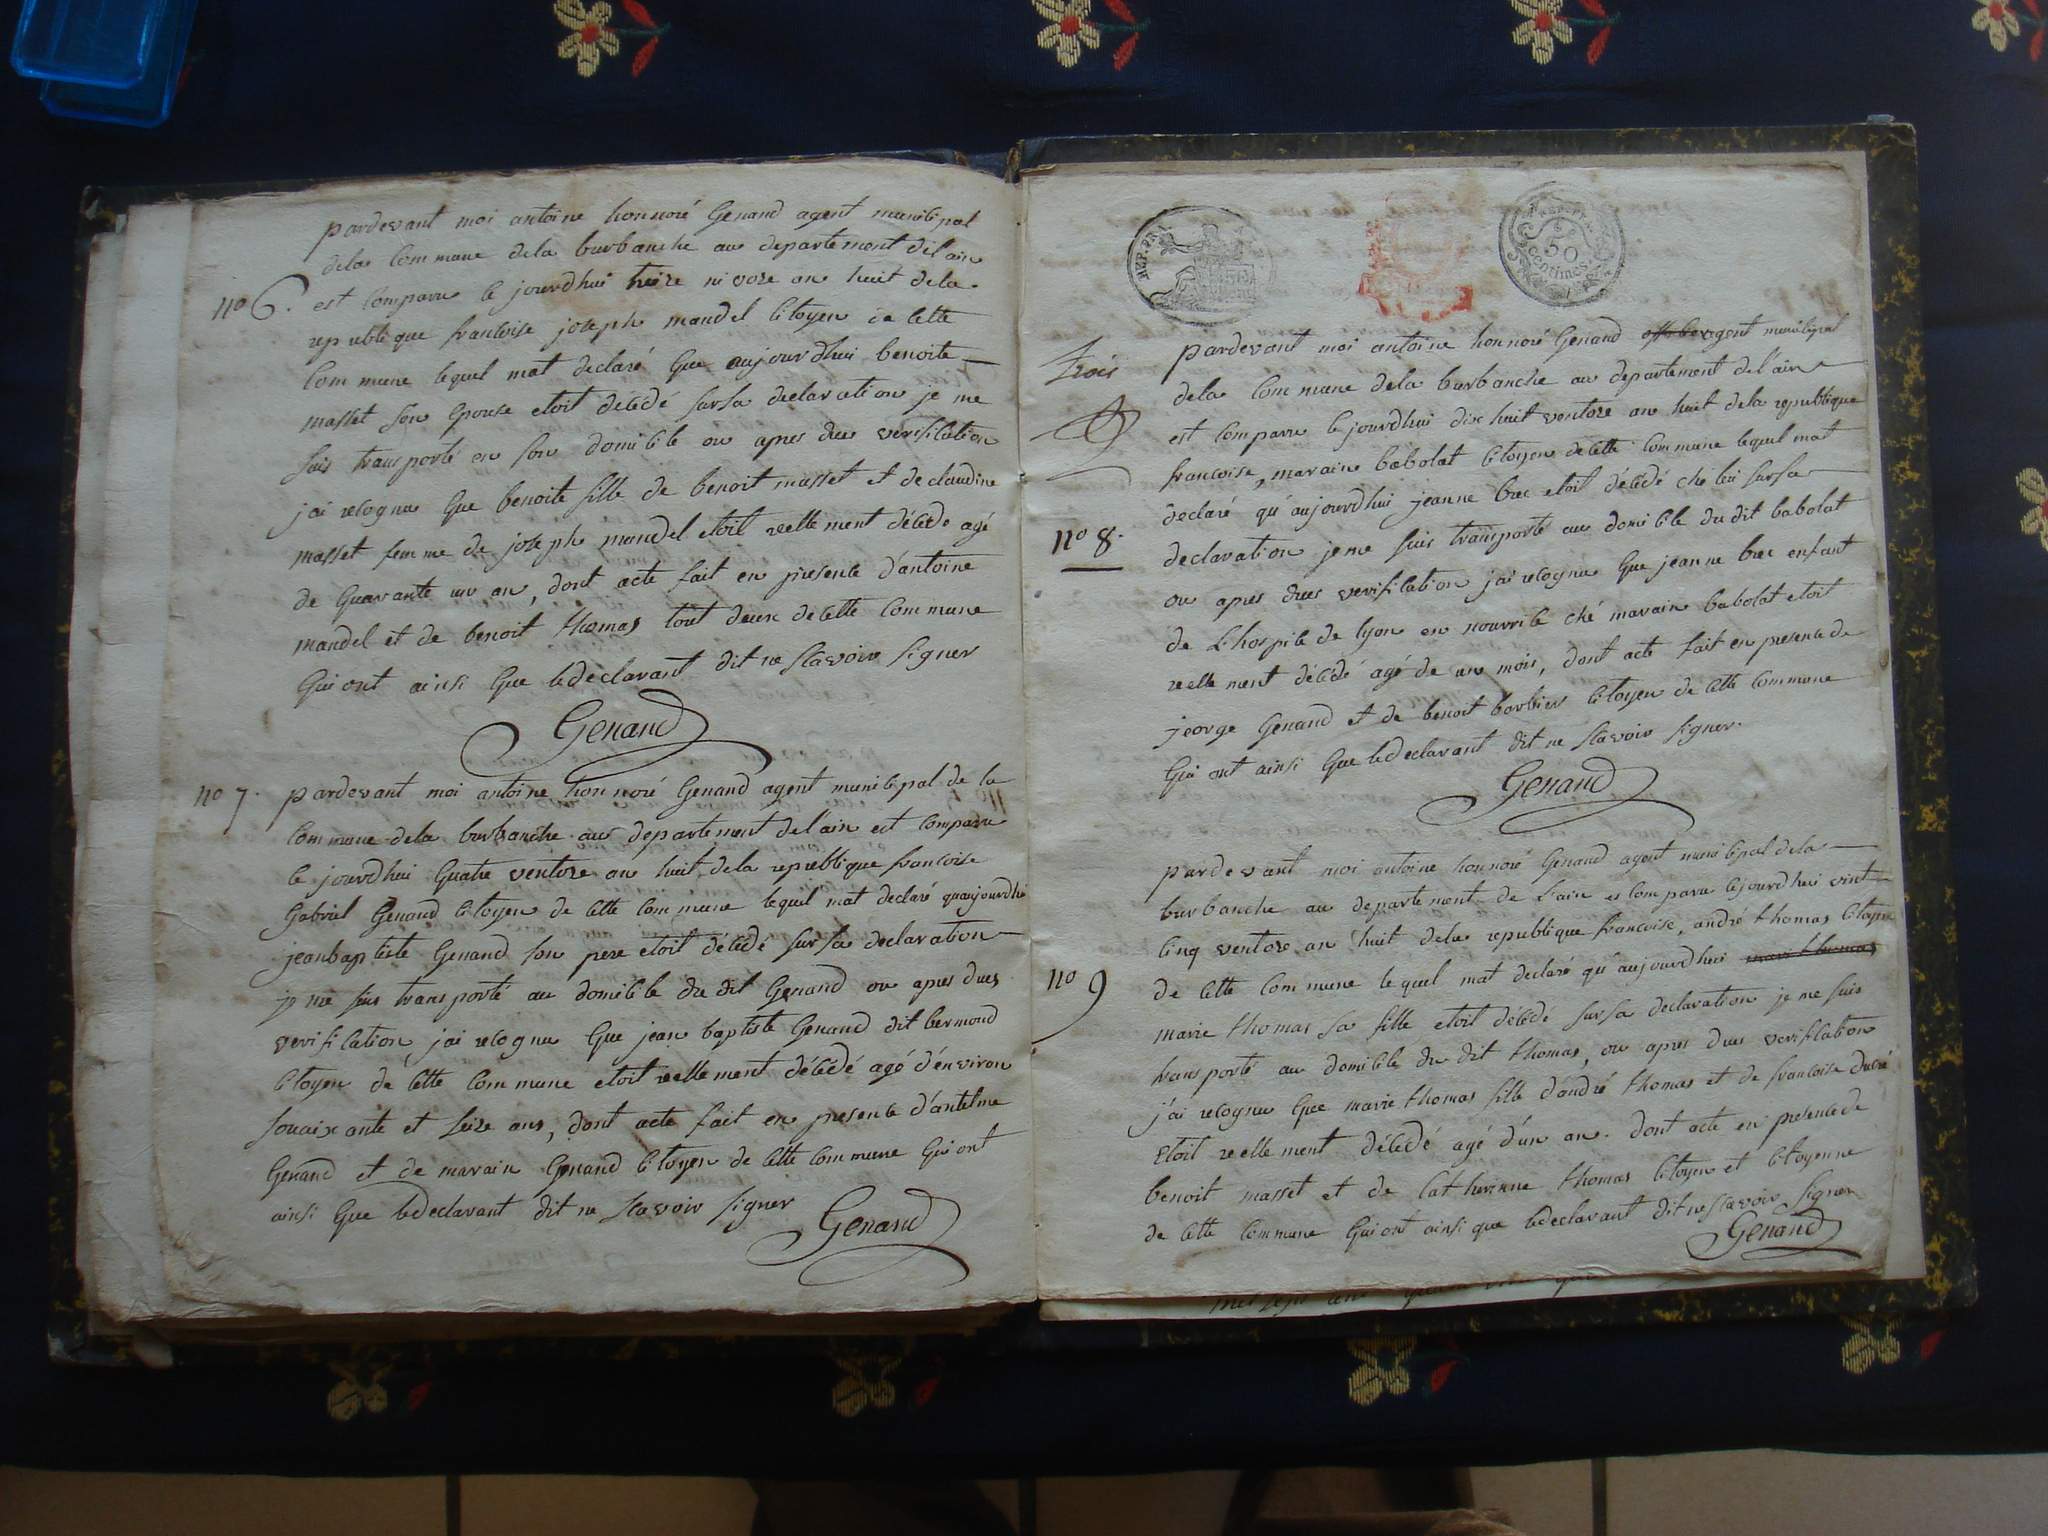 pardevant moi antoine honnoré Genand agent municipal
dela Commune dela burbanche au departement del'ain
no 6. est Comparu le jourdhui treize nivose an huit dela
republique francoise joseph mandel Citoyen de Cette
Commune lequel mat declaré Que aujourdhui benoite
masset son Epouse etoit décédé sur sa declaration je me
suis transporté en son domicile ou apres dues verification
jai recognu Que benoite fille de benoit masset et de claudine
masset femme de joseph mandel etoit reellement décédé agé
de Quarante un an, dont acte fait en presence d'antoine
mandel et de benoit thomas tout deux de Cette Commune
Qui ont ainsi Que le declarant dit ne scavoir signer
Genand
no 7. pardevant moi antoine honnoré Genand agent municipal de la
Commune dela burbanche au departement del'ain est Comparu
le jourdhui Quatre ventose an huit dela republique francoise
Gabriel Genand Citoyen de Cette Commune lequel mat declaré quaujourdhui
jeanbaptiste Genand son pere etoit décédé sur sa declaration
je me suis transporté au domicile du dit Genand ou apres dues
verification j'ai recognu Que jean baptiste Genand dit bermond
Citoyen de Cette Commune etoit reellement décédé agé d'environ
souaixante et seize ans, dont acte fait en presence d'antelme
Genand et de marain Genand Citoyen de Cette Commune Qui ont
ainsi Que le declarant dit ne scavoir signer Genand
REP. FRA.
REP. FRA.
50
centimes
trois pardevant moi antoine honnoré Genand agent municipal
dela Commune dela burbanche au departement del'ain
est Comparu le jourdhui dix huit ventose an huit dela republique
francoise, marain babolat Citoyen de Cette Commune lequel mat
declaré qu'aujourdhui jeanne bree etoit décédé ché lui sur sa
no 8. declaration je me suis transporté au domicile du dit babolat
ou apres dues verification j'ai recognu Que jeanne bree enfant
de L'hospice de lyon en nourrice ché marain babolat etoit
reellement décédé agé de un mois, dont acte fait en presence de
jeorge Genand et de benoit barbier Citoyen de Cette Commune
Qui ont ainsi Que le declarant dit ne scavoir signer.
Genand
pardevant moi antoine honnoré Genand agent municipal dela
burbanche au departement de l'ain es Comparu lejourdhui vint
Cinq ventose an huit dela republique francoise, andré thomas Citoyen
no 9 de Cette Commune lequel mat declaré qu'aujourdhui mari thomas
marie thomas sa fille etoit décédé sur sa declaration je me suis
transporté au domicile du dit thomas, ou apres dues verification
j'ai recognu Que marie thomas fille d'andré thomas et de francoise ducré
Etoit reellement décédé agé d'un an. dont acte en presence de
benoit masset et de Catherinne thomas Citoyen et Citoyenne
de Cette Commune Qui ont ainsi que le declarant dit ne scavoir signer
Genand